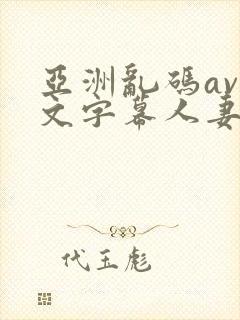 亞洲亂碼av
文字幕人妻
代玉彪